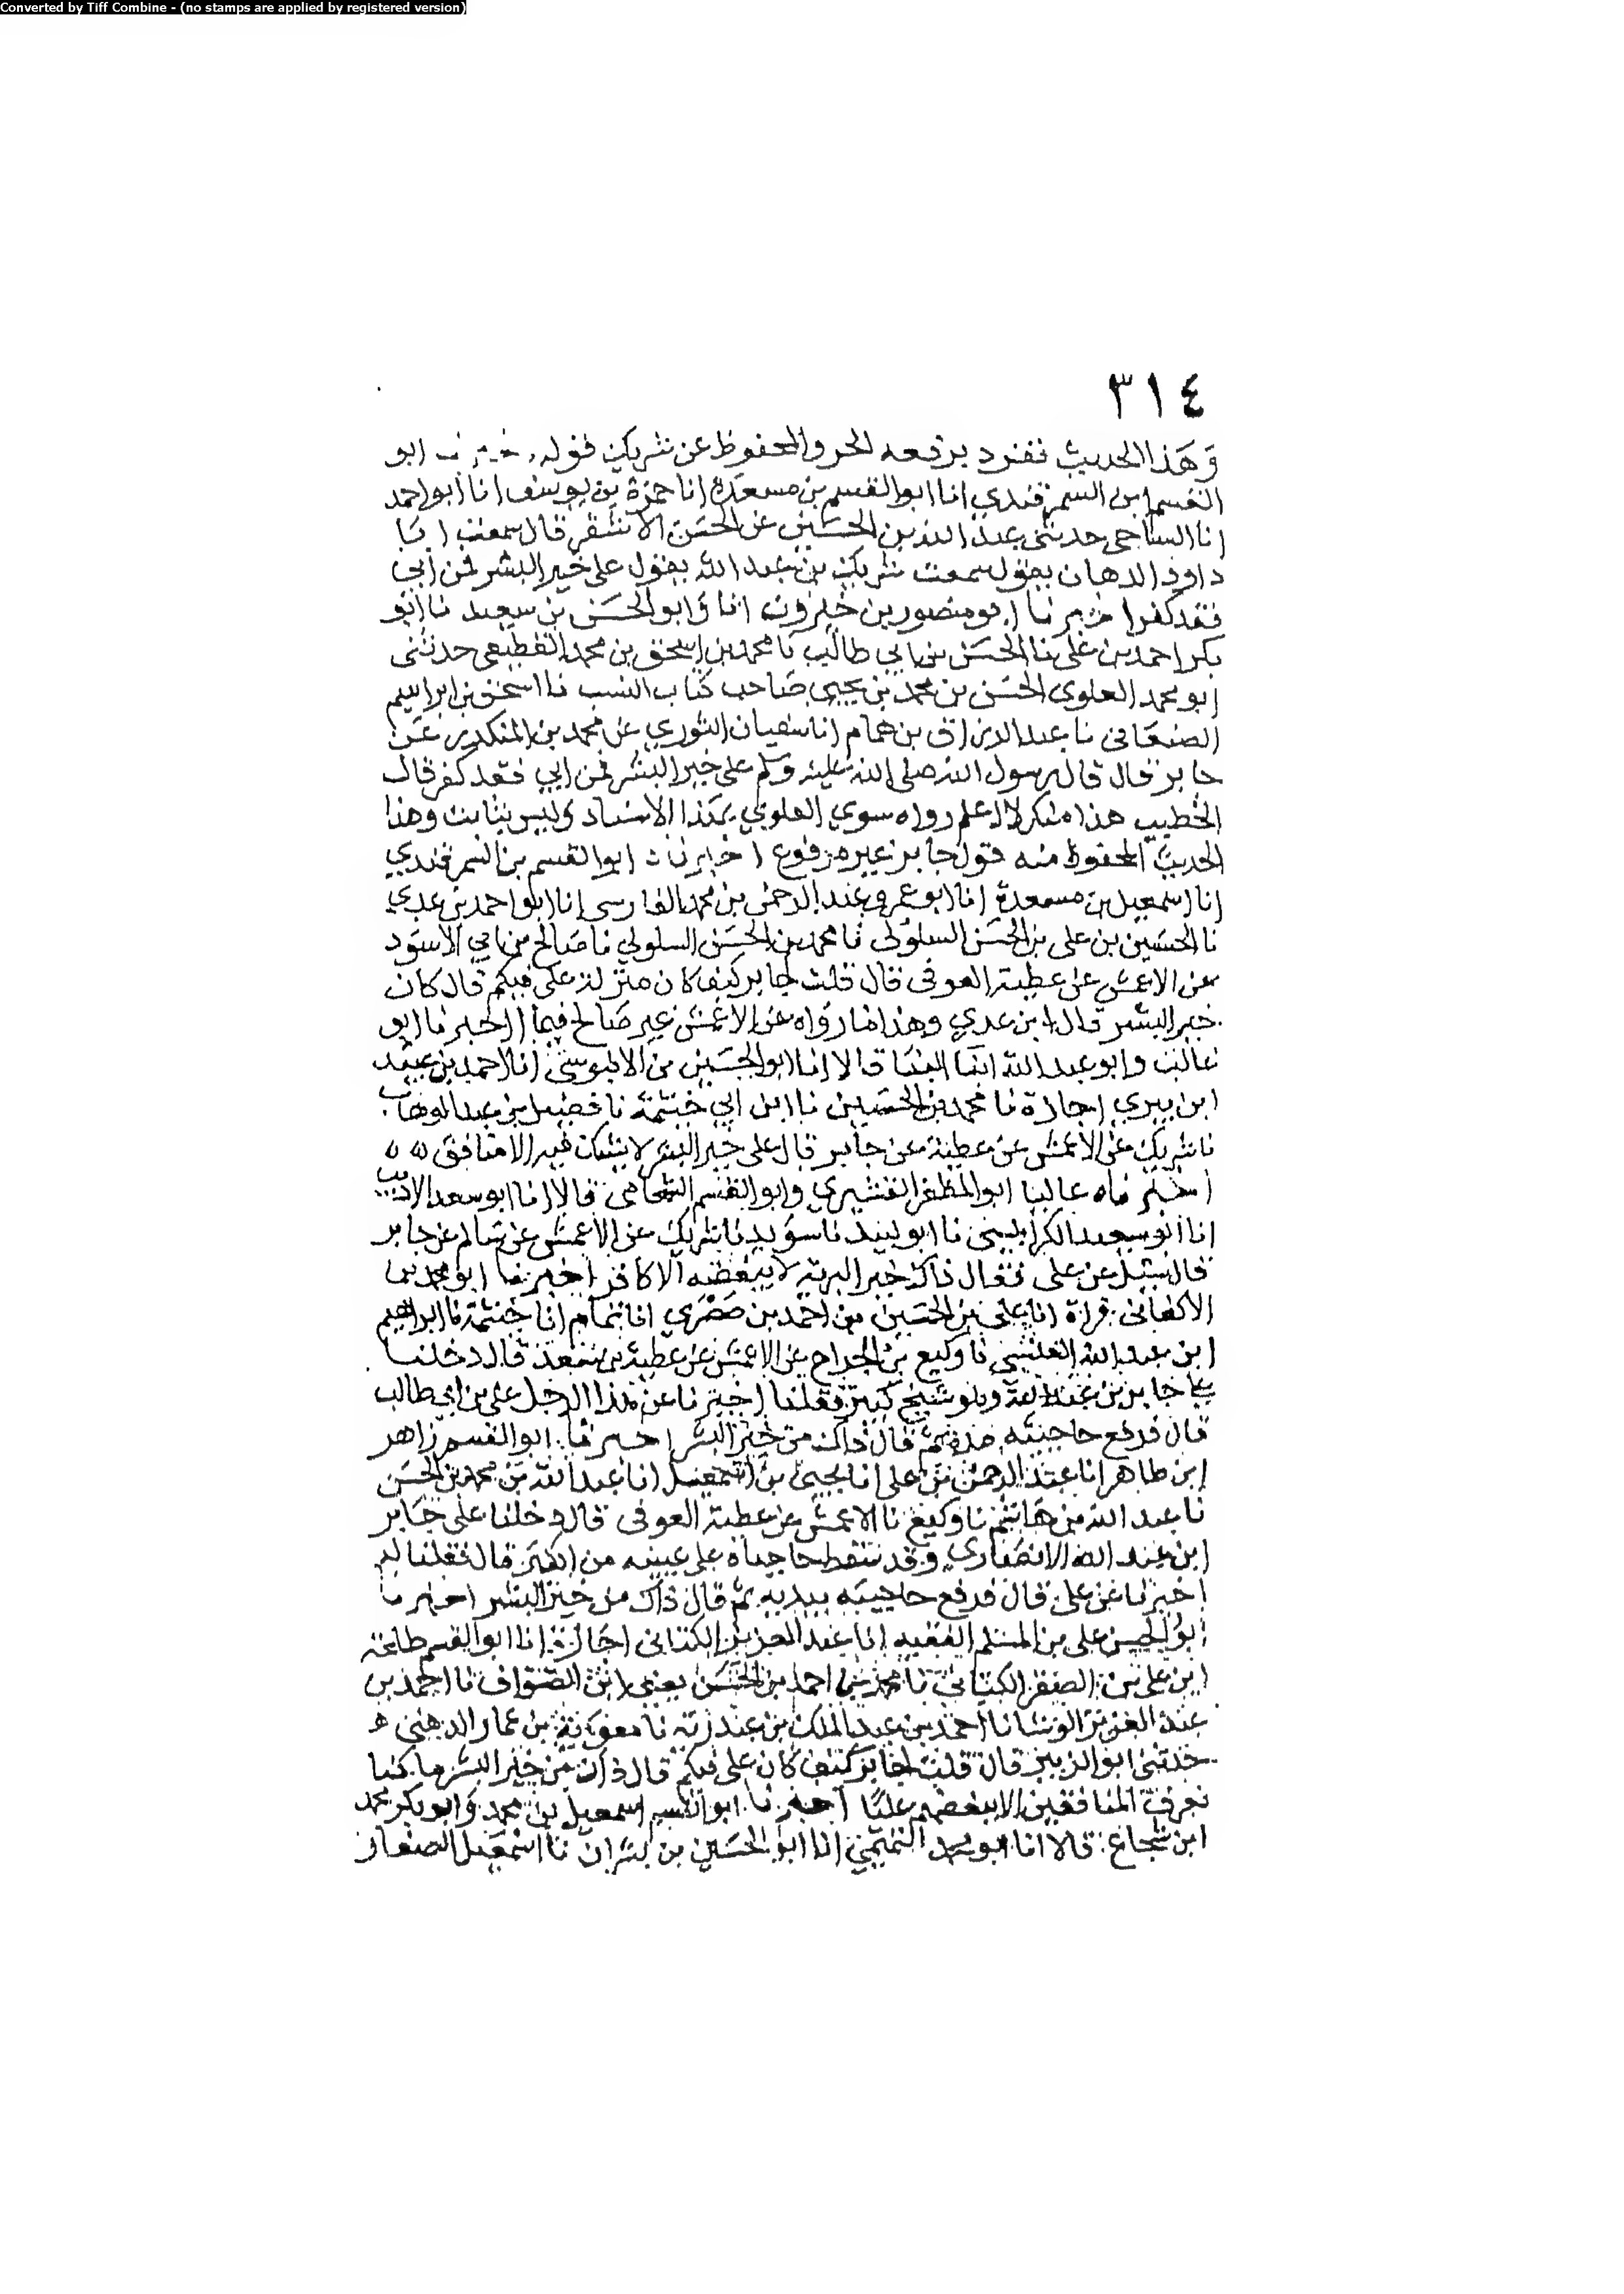 Converted by Tiff Combine - (no stamps are applied by registered version)
٣١٤
وهذا الحديث تفرد برفعه الحر والمحفوظ عن شريك قوله ابو
القسم ابن السمرقندي انا ابو القسم بن مسعدة انا حمزة بن يوسف انا ابو احمد
انا الساجي حدثني عبد الله بن الحسين عن الحسن الاشقر قال سمعت ابا
داود الدهان يقول سمعت شريك بن عبد الله يقول علي خير البشر فمن ابي
فقد كفر اخبرنا ابو منصور بن خيرون انا وابو الحسن بن سعيد نا ابو
بكر احمد بن علي نا الحسن بن ابي طالب نا محمد بن اسحق بن محمد القطيعي حدثني
ابو محمد العلوي الحسن بن محمد بن يحيى صاحب كتاب النسب نا اسحق بن ابراهيم
الصنعاني نا عبد الرزاق بن همام انا سفيان الثوري عن محمد بن المنكدر عن
جابر قال قال رسول الله صلى الله عليه وسلم علي خير البشر فمن ابي فقد كفر قال
الخطيب هذا منكر لا اعلم رواه سوي العلوي بهذا الاسناد وليس بثابت وهذا
الحديث المحفوظ منه قول جابر غير مرفوع اخبرنا ابو القسم بن السمرقندي
انا اسمعيل بن مسعدة انا ابو عمرو عبد الرحمن بن محمد الفارسي انا ابو احمد بن عدي
نا الحسين بن علي بن الحسن السلولي نا محمد بن الحسن السلولي نا صالح بن ابي الاسود
عن الاعمش عن عطية العوفي قال قلت لجابر كيف كان منزلة علي فيكم قال كان
خير البشر قال ابن عدي وهذا ما رواه عن الاعمش غير صالح فيما اخبرنا ابو
غالب وابو عبد الله ابنا البنا قالا انا ابو الحسين بن الابنوسي انا احمد بن عبيد
ابن بيري اجازة نا محمد بن الحسين نا ابن ابي خيثمة نا فضيل بن عبد الوهاب
نا شريك عن الاعمش عن عطية عن جابر قال علي خير البشر لا يشك فيه الا منافق
اخبرناه عاليا ابو المظفر القشيري وابو القسم الشحامي قالا انا ابو سعد الاديب
انا ابو سعيد الكرابيسي نا ابو لبيد نا سويد نا شريك عن الاعمش عن سالم عن جابر
قال سئل عن علي فقال ذاك خير البرية لا يبغضه الا كافر اخبرنا ابو محمد بن
الاكفاني قراة انا علي بن الحسين بن احمد بن صصري انا تمام انا خيثمة نا ابراهيم
ابن عبد الله العبسي نا وكيع بن الجراح عن الاعمش عن عطية بن سعد قال دخلنا
على جابر بن عبد الله وهو شيخ كبير فقلنا اخبرنا عن هذا الرجل علي بن ابي طالب
قال فرفع حاجبيه ثم قال ذاك من خير البشر اخبرنا ابو القسم زاهر
ابن طاهر انا عبد الرحمن بن علي انا يحيى بن اسمعيل انا عبد الله بن محمد بن الحسن
نا عبد الله بن هاشم نا وكيع نا الاعمش عن عطية العوفي قال دخلنا على جابر
ابن عبد الله الانصاري وقد سقط حاجباه على عينيه من الكبر قال فقلنا له
اخبرنا عن علي قال فرفع حاجبيه بيديه ثم قال ذاك من خير البشر اخبرنا
ابو الحسن علي بن المسلم الفقيه انا عبد العزيز الكتاني اجازة انا ابو القسم طلحة
ابن علي بن الصقر الكتاني نا محمد بن احمد بن الحسن يعني ابن الصواف نا احمد بن
عبد العزيز الوشا نا احمد بن عبد الملك بن عبد ربه نا معوية بن عمار الدهني
حدثني ابو الزبير قال قلت لجابر كيف كان علي فيكم قال ذاك من خير البشر ما كنا
نعرف المنافقين الا ببغضهم عليا اخبرنا ابو القسم اسمعيل بن محمد وابو بكر محمد
ابن شجاع قالا انا ابو محمد التميمي انا ابو الحسين بن بشران نا اسمعيل الصفار